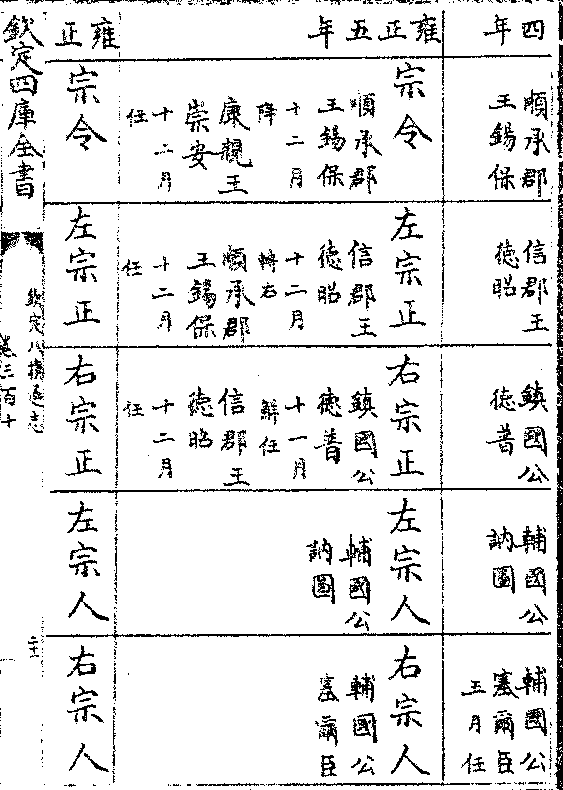 四年
順承郡
王錫保
信郡王
徳昭
鎮國公
徳普
輔國公
訥圖
輔國公
塞爾臣
五月任
雍正五年
宗令
順承郡
王錫保
十二月
降
康親王
崇安
十二月
任
左宗正
信郡王
徳昭
十二月
轉右
順承郡
王錫保
十二月
任
右宗正
鎮國公
徳普
十一月
解任
信郡王
徳昭
十二月
任
左宗人
輔國公
訥圖
右宗人
輔國公
塞爾臣
雍正
宗令
左宗正
右宗正
左宗人
右宗人
欽定四庫全書
欽定八旗通志
卷三百十